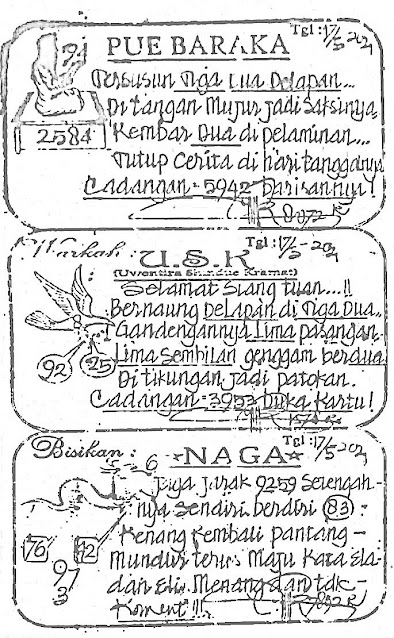 Tgl: 17/5-2021
PUE BARAKA
91
2584
Tersusun Tiga Dua Delapan...
Di tangan Mujur jadi Saksinya
Kembar Dua di pelaminan...
Tutup Cerita di hari tangganya
Cadangan = 5942 barisannya!
Warkah: U.S.K Tgl: 17/5-2021
(Uwentira Shindue Kramat)
Selamat Siang tuan...!!
Bernaung Delapan di Tiga Dua..
Gandengannya Lima pasangan
Lima Sembilan genggam berdua
92 25
Di tikungan jadi patokan.
Cadangan = 3953 buka kartu!
Bisikan: NAGA Tgl: 17/5-2021
5-6
Jaga jarak 9259 Setengah-
nya Sendiri berdiri 83.
Kenang Kembali pantang
76
Mundur terus Maju Kata Ela
dan Elis. Menang dan tdk
97
3
Koment!!!